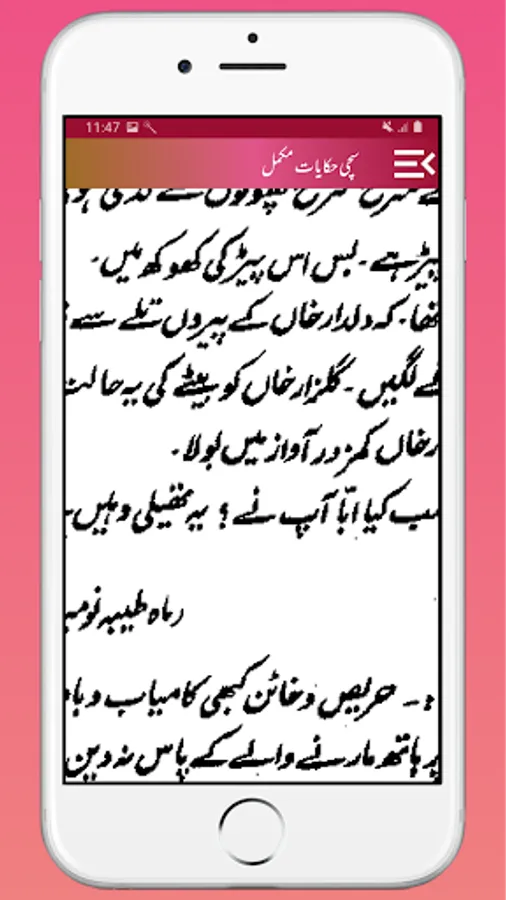 11:47
سچی حکایات مکمل
پیڑ ہے۔ بس اس پیڑ کی کھوکھ میں۔
تھا۔ کہ دلدار خاں کے پیروں تلے سے
لگیں۔ گلزار خاں کو بیٹے کی یہ حالت
خاں کمزور آواز میں بولا۔
کیا ابّا آپ نے؟ یہ تھیلی وہیں
(ماہ طیبہ نومبر
:۔ حریص و خائن کبھی کامیاب و با
پر ہاتھ مارنے والے کے پاس نہ دین